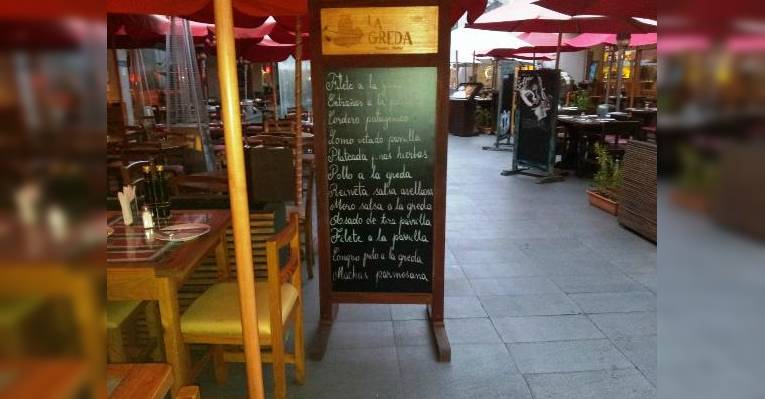 LA
GREDA
Filete a la
Entrañas a la
Cordero patagónico
Lomo vetado parrilla
Plateada finas hierbas
Pollo a la greda
Reineta salsa avellana
Mero salsa a la greda
Asado de tira parrilla
Filete a la parrilla
Congrio frito a la greda
Machas parmesana